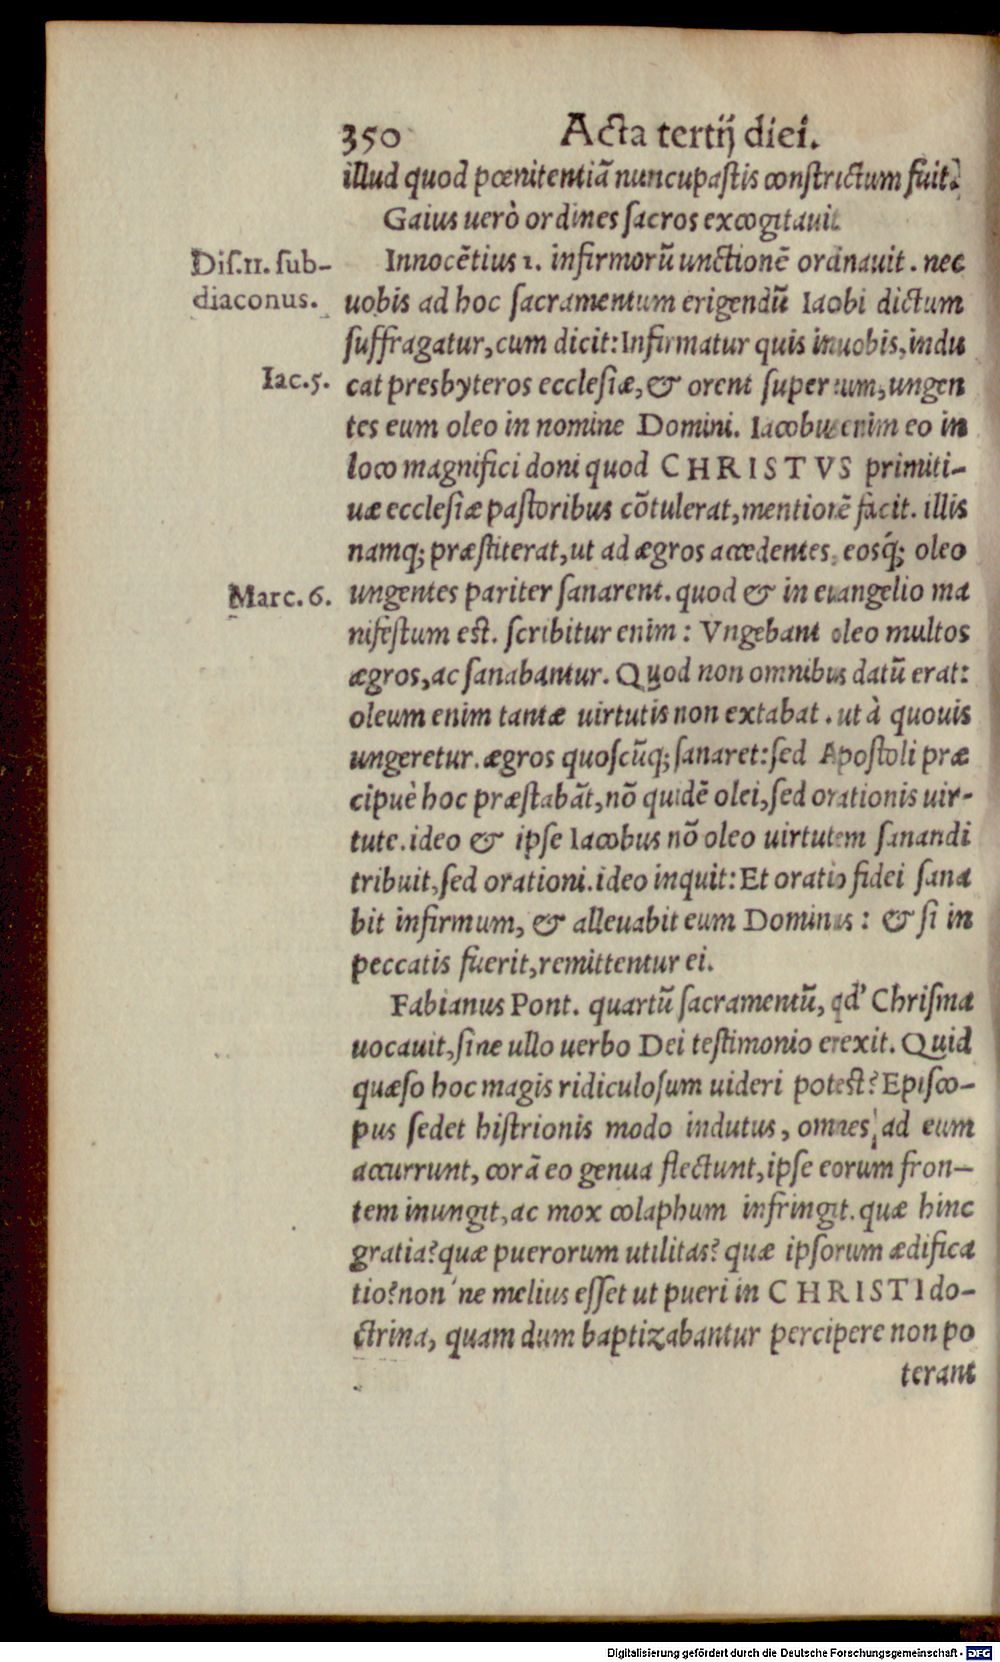 350 Acta tertij diei.
illud quod pœnitentiã nuncupastis constrictum fuit.
Gaius uerò ordines sacros excogitauit.
Dis.11. sub-
diaconus.
Innocẽtius 1. infirmorũ unctionẽ ordinauit. nec
uobis ad hoc sacramentum erigendũ Iacobi dictum
suffragatur, cum dicit: Infirmatur quis in uobis, indu
Iac.5.
cat presbyteros ecclesiæ, & orent super eum, ungen
tes eum oleo in nomine Domini. Iacobus enim eo in
loco magnifici doni quod CHRISTVS primiti-
uæ ecclesiæ pastoribus cõtulerat, mentionẽ facit. illis
namq; præstiterat, ut ad ægros accedentes, eosq́; oleo
Marc.6.
ungentes pariter sanarent. quod & in euangelio ma
nifestum est. scribitur enim: Vngebant oleo multos
ægros, ac sanabantur. Quod non omnibus datũ erat:
oleum enim tantæ uirtutis non extabat. ut à quouis
ungeretur. ægros quoscũq; sanaret: sed Apostoli præ
cipuè hoc præstabãt, nõ quidẽ olei, sed orationis uir-
tute. ideo & ipse Iacobus nõ oleo uirtutem sanandi
tribuit, sed orationi. ideo inquit: Et oratio fidei sana
bit infirmum, & alleuabit eum Dominus: & si in
peccatis fuerit, remittentur ei.
Fabianus Pont. quartũ sacramentũ, qd' Chrisma
uocauit, sine ullo uerbo Dei testimonio erexit. Quid
quæso hoc magis ridiculosum uideri potest? Episco-
pus sedet histrionis modo indutus, omnes ad eum
accurrunt, corã eo genua flectunt, ipse eorum fron-
tem inungit, ac mox colaphum infringit. quæ hinc
gratia? quæ puerorum utilitas? quæ ipsorum ædifica
tio? non'ne melius esset ut pueri in CHRISTI do-
ctrina, quam dum baptizabantur percipere non po
terant
Digitalisierung gefördert durch die Deutsche Forschungsgemeinschaft - DFG